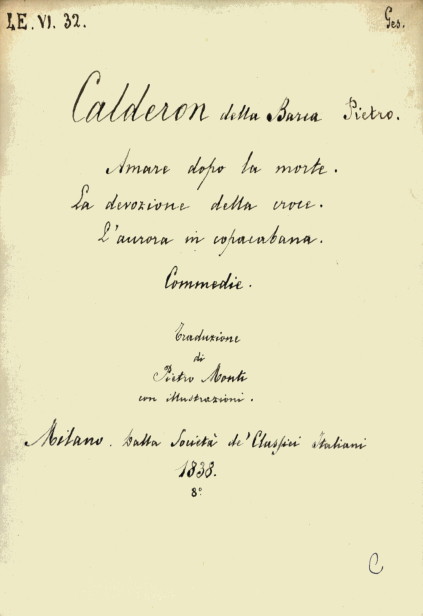 I.E. VI. 32.
Ges.
Calderon della Barca Pietro.
Amare dopo la morte.
La devozione della croce.
L'aurora in copacabana.
Commedie.
Traduzione
di
Pietro Monti
con illustrazioni.
Milano. Dalla Società de' Classici Italiani
1838.
8°
C